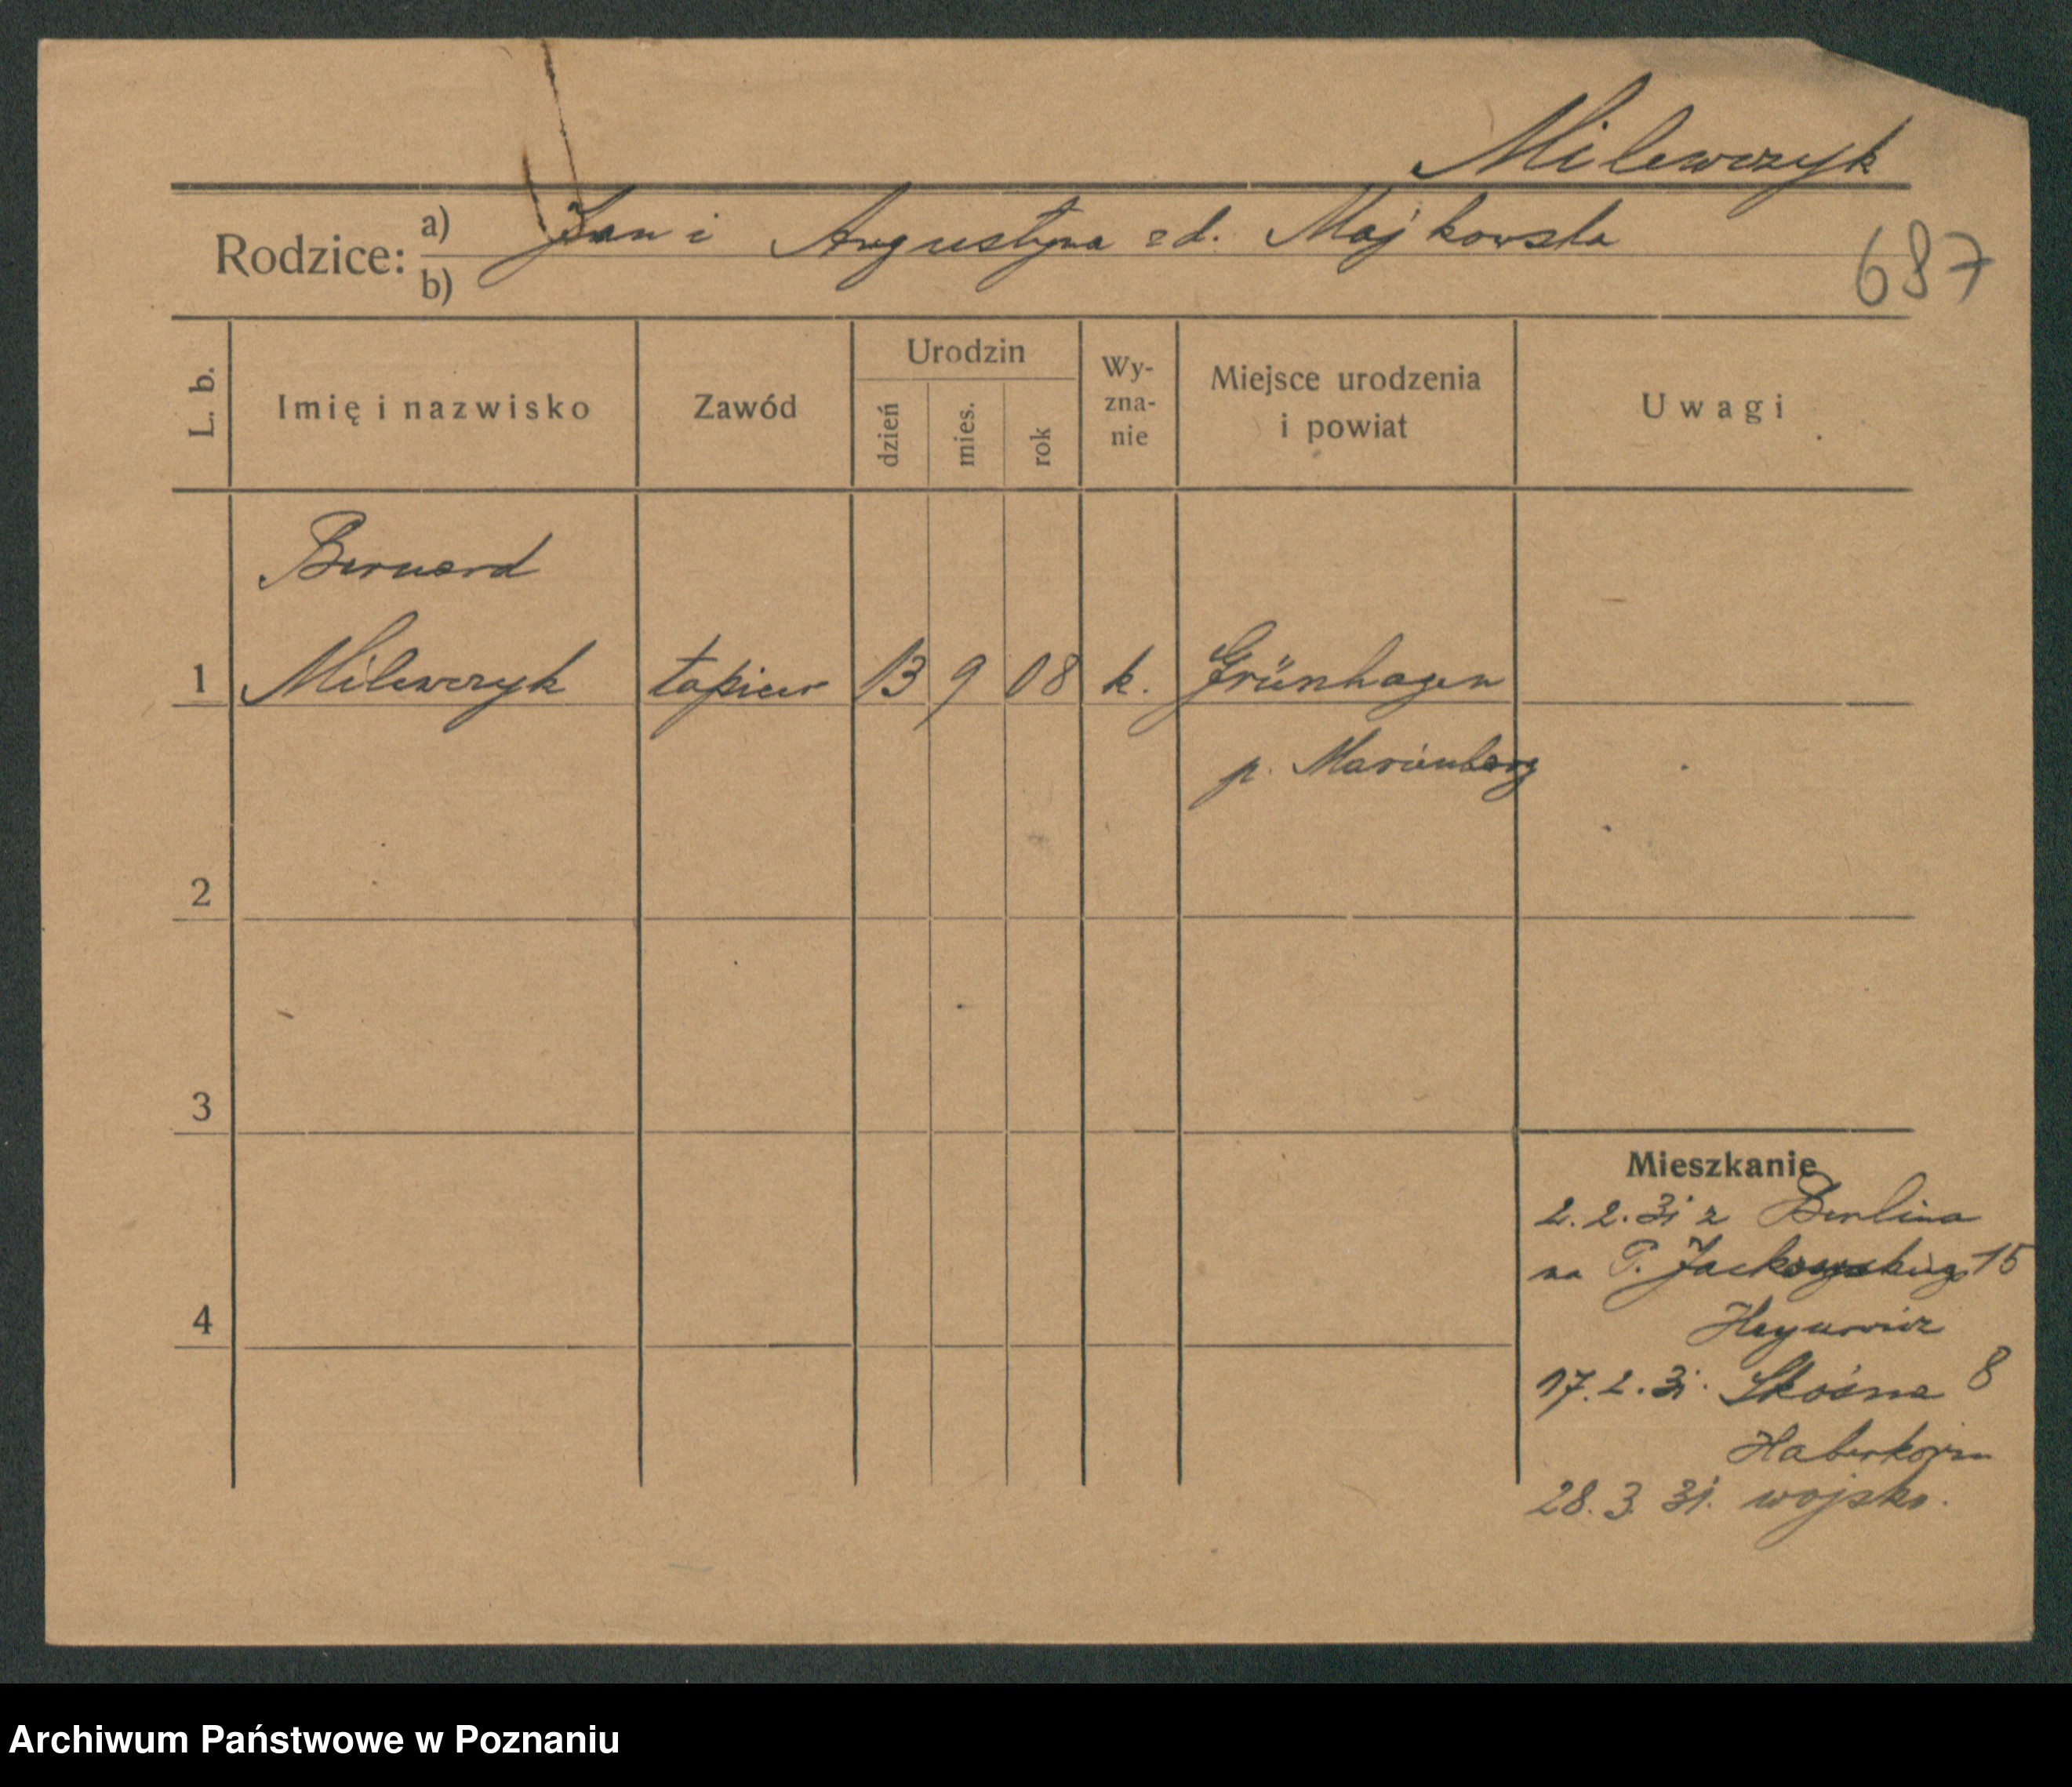 Milewczyk
Rodzice: a) Jan i Augustyna zd. Majkowska
b)
687
L. b.
Imię i nazwisko
Zawód
Urodzin
dzień
mies.
rok
Wy-
zna-
nie
Miejsce urodzenia
i powiat
Uwagi
Bernard
1 Milewczyk tapicer 13 9 08 k. Grünhagen
p. Marienberg
2
3
Mieszkanie
2.2.31 z Berlina
na P. Jackowskiego 15
4
17.2.31. Skośna 8
Haberkorn
28.3.31. wojsko.
Archiwum Państwowe w Poznaniu